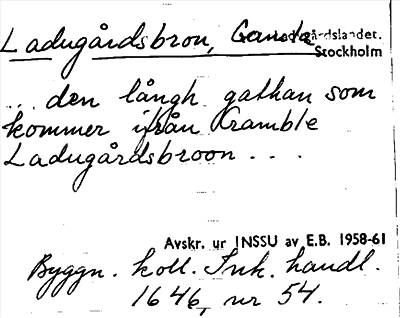 Ladugårdsbron, Gamla
Ladugårdslandet.
Stockholm
... den långh gathan som
kommer ifrån Gramble
Ladugårdsbroon ...
Avskr. ur INSSU av E.B. 1958-61
Byggn. koll. Ink. handl.
1646, nr 54.